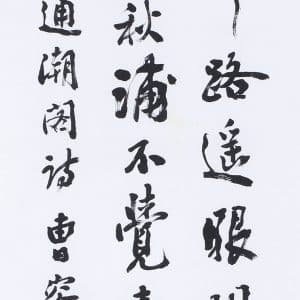 路遥眼
秋浦不覺
通潮阁诗曹